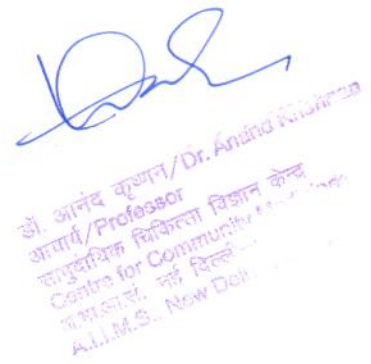 डॉ. आनंद कृष्णन/Dr. Anand Krishnan
आचार्य/Professor
सामुदायिक चिकित्सा विज्ञान केन्द्र
Centre for Community
अ.भा.आ.सं. नई दिल्ली
A.I.I.M.S., New Delhi